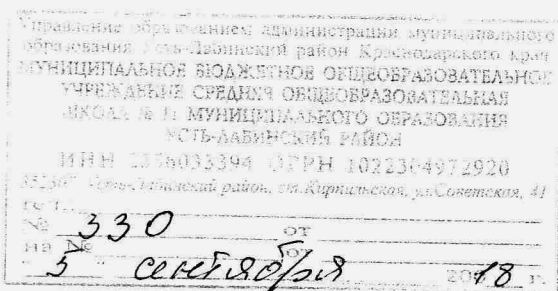 Управление образованием администрации муниципального
образования Усть-Лабинский район Краснодарского края
МУНИЦИПАЛЬНОЕ БЮДЖЕТНОЕ ОБЩЕОБРАЗОВАТЕЛЬНОЕ
УЧРЕЖДЕНИЕ СРЕДНЯЯ ОБЩЕОБРАЗОВАТЕЛЬНАЯ
ШКОЛА № 11 МУНИЦИПАЛЬНОГО ОБРАЗОВАНИЯ
УСТЬ-ЛАБИНСКИЙ РАЙОН
ИНН 2356033394 ОГРН 1022304972920
Усть-Лабинский район, ст.Кирпильская, ул.Советская, 41
тел.
№ 330 от
на № от
"5" сентября 2018 г.